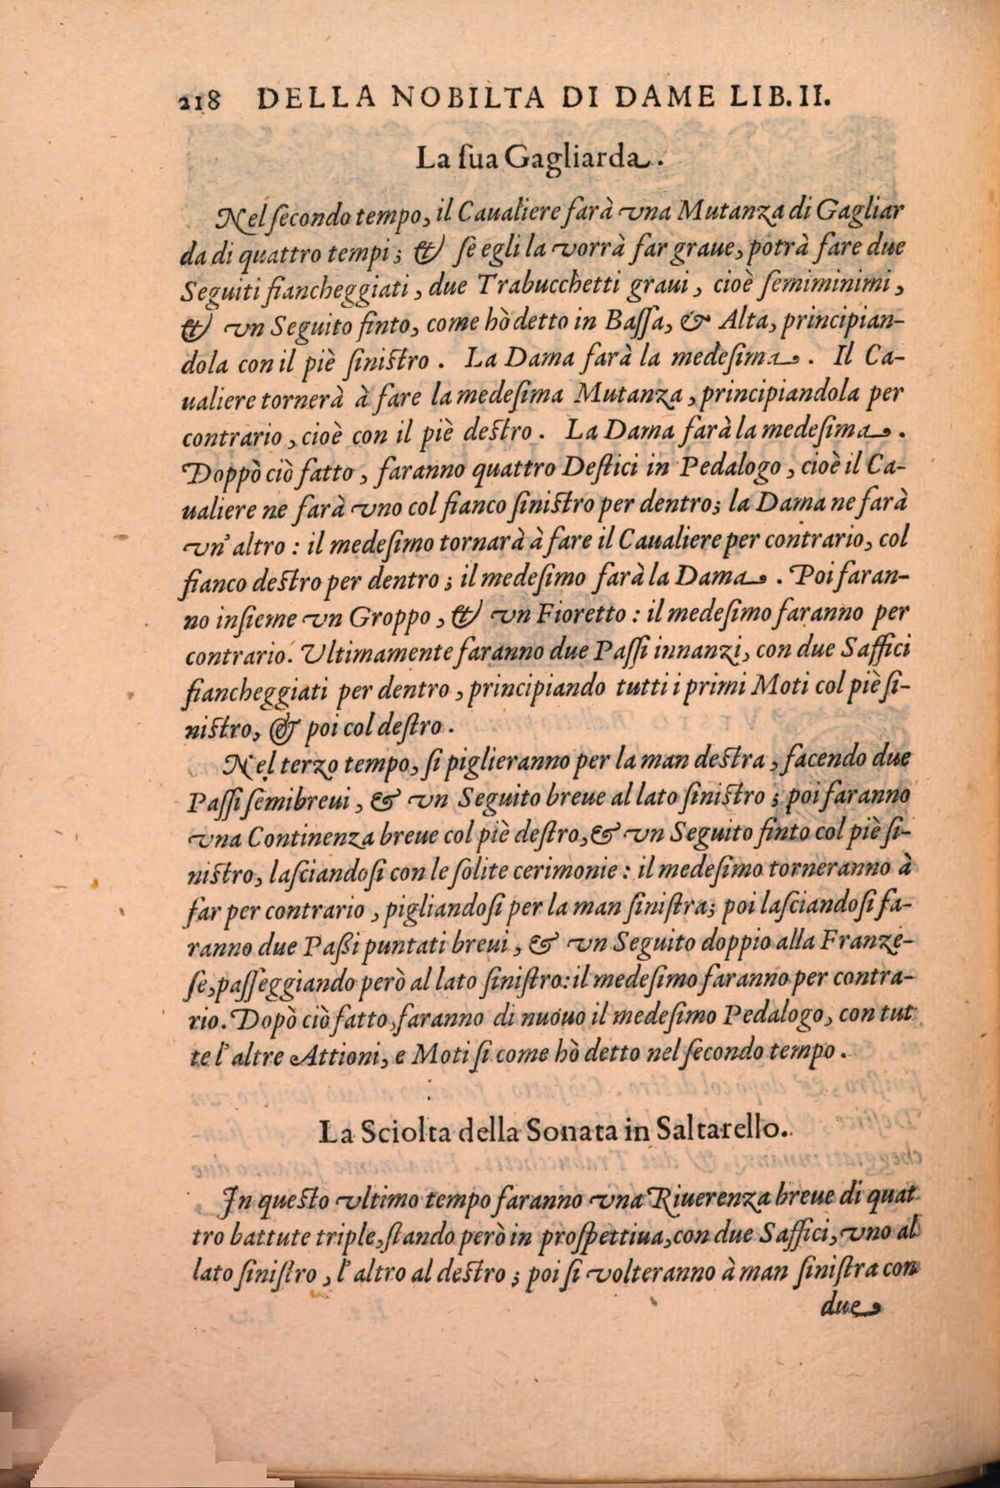 218 DELLA NOBILTA DI DAME LIB. II.
La ſua Gagliarda.
Nel ſecondo tempo, il Caualiere farà vna Mutanza di Gagliar
da di quattro tempi; & ſe egli la vorrà far graue, potrà fare due
Seguiti fiancheggiati, due Trabucchetti graui, cioè ſemiminimi,
& vn Seguito finto, come hò detto in Baſſa, & Alta, principian-
dola con il piè ſiniſtro. La Dama farà la medeſima. Il Ca-
ualiere tornerà à fare la medeſima Mutanza, principiandola per
contrario, cioè con il piè deſtro. La Dama farà la medeſima.
Doppò ciò fatto, faranno quattro Deſtici in Pedalogo, cioè il Ca-
ualiere ne farà vno col fianco ſiniſtro per dentro; la Dama ne farà
vn' altro: il medeſimo tornarà à fare il Caualiere per contrario, col
fianco deſtro per dentro; il medeſimo farà la Dama. Poi faran-
no inſieme vn Groppo, & vn Fioretto: il medeſimo faranno per
contrario. Vltimamente faranno due Paſſi innanzi, con due Saffici
fiancheggiati per dentro, principiando tutti i primi Moti col piè ſi-
niſtro, & poi col deſtro.
Nel terzo tempo, ſi piglieranno per la man deſtra, facendo due
Paſſi ſemibreui, & vn Seguito breue al lato ſiniſtro; poi faranno
vna Continenza breue col piè deſtro, & vn Seguito finto col piè ſi-
niſtro, laſciandoſi con le ſolite cerimonie: il medeſimo torneranno à
far per contrario, pigliandoſi per la man ſiniſtra; poi laſciandoſi fa-
ranno due Paßi puntati breui, & vn Seguito doppio alla Franze-
ſe, paſſeggiando però al lato ſiniſtro: il medeſimo faranno per contra-
rio. Dopò ciò fatto, faranno di nuouo il medeſimo Pedalogo, con tut
te l'altre Attioni, e Moti ſi come hò detto nel ſecondo tempo.
La Sciolta della Sonata in Saltarello.
In queſto vltimo tempo faranno vna Riuerenza breue di quat
tro battute triple, ſtando però in proſpettiua, con due Saffici, vno al
lato ſiniſtro, l'altro al deſtro; poi ſi volteranno à man ſiniſtra con
due